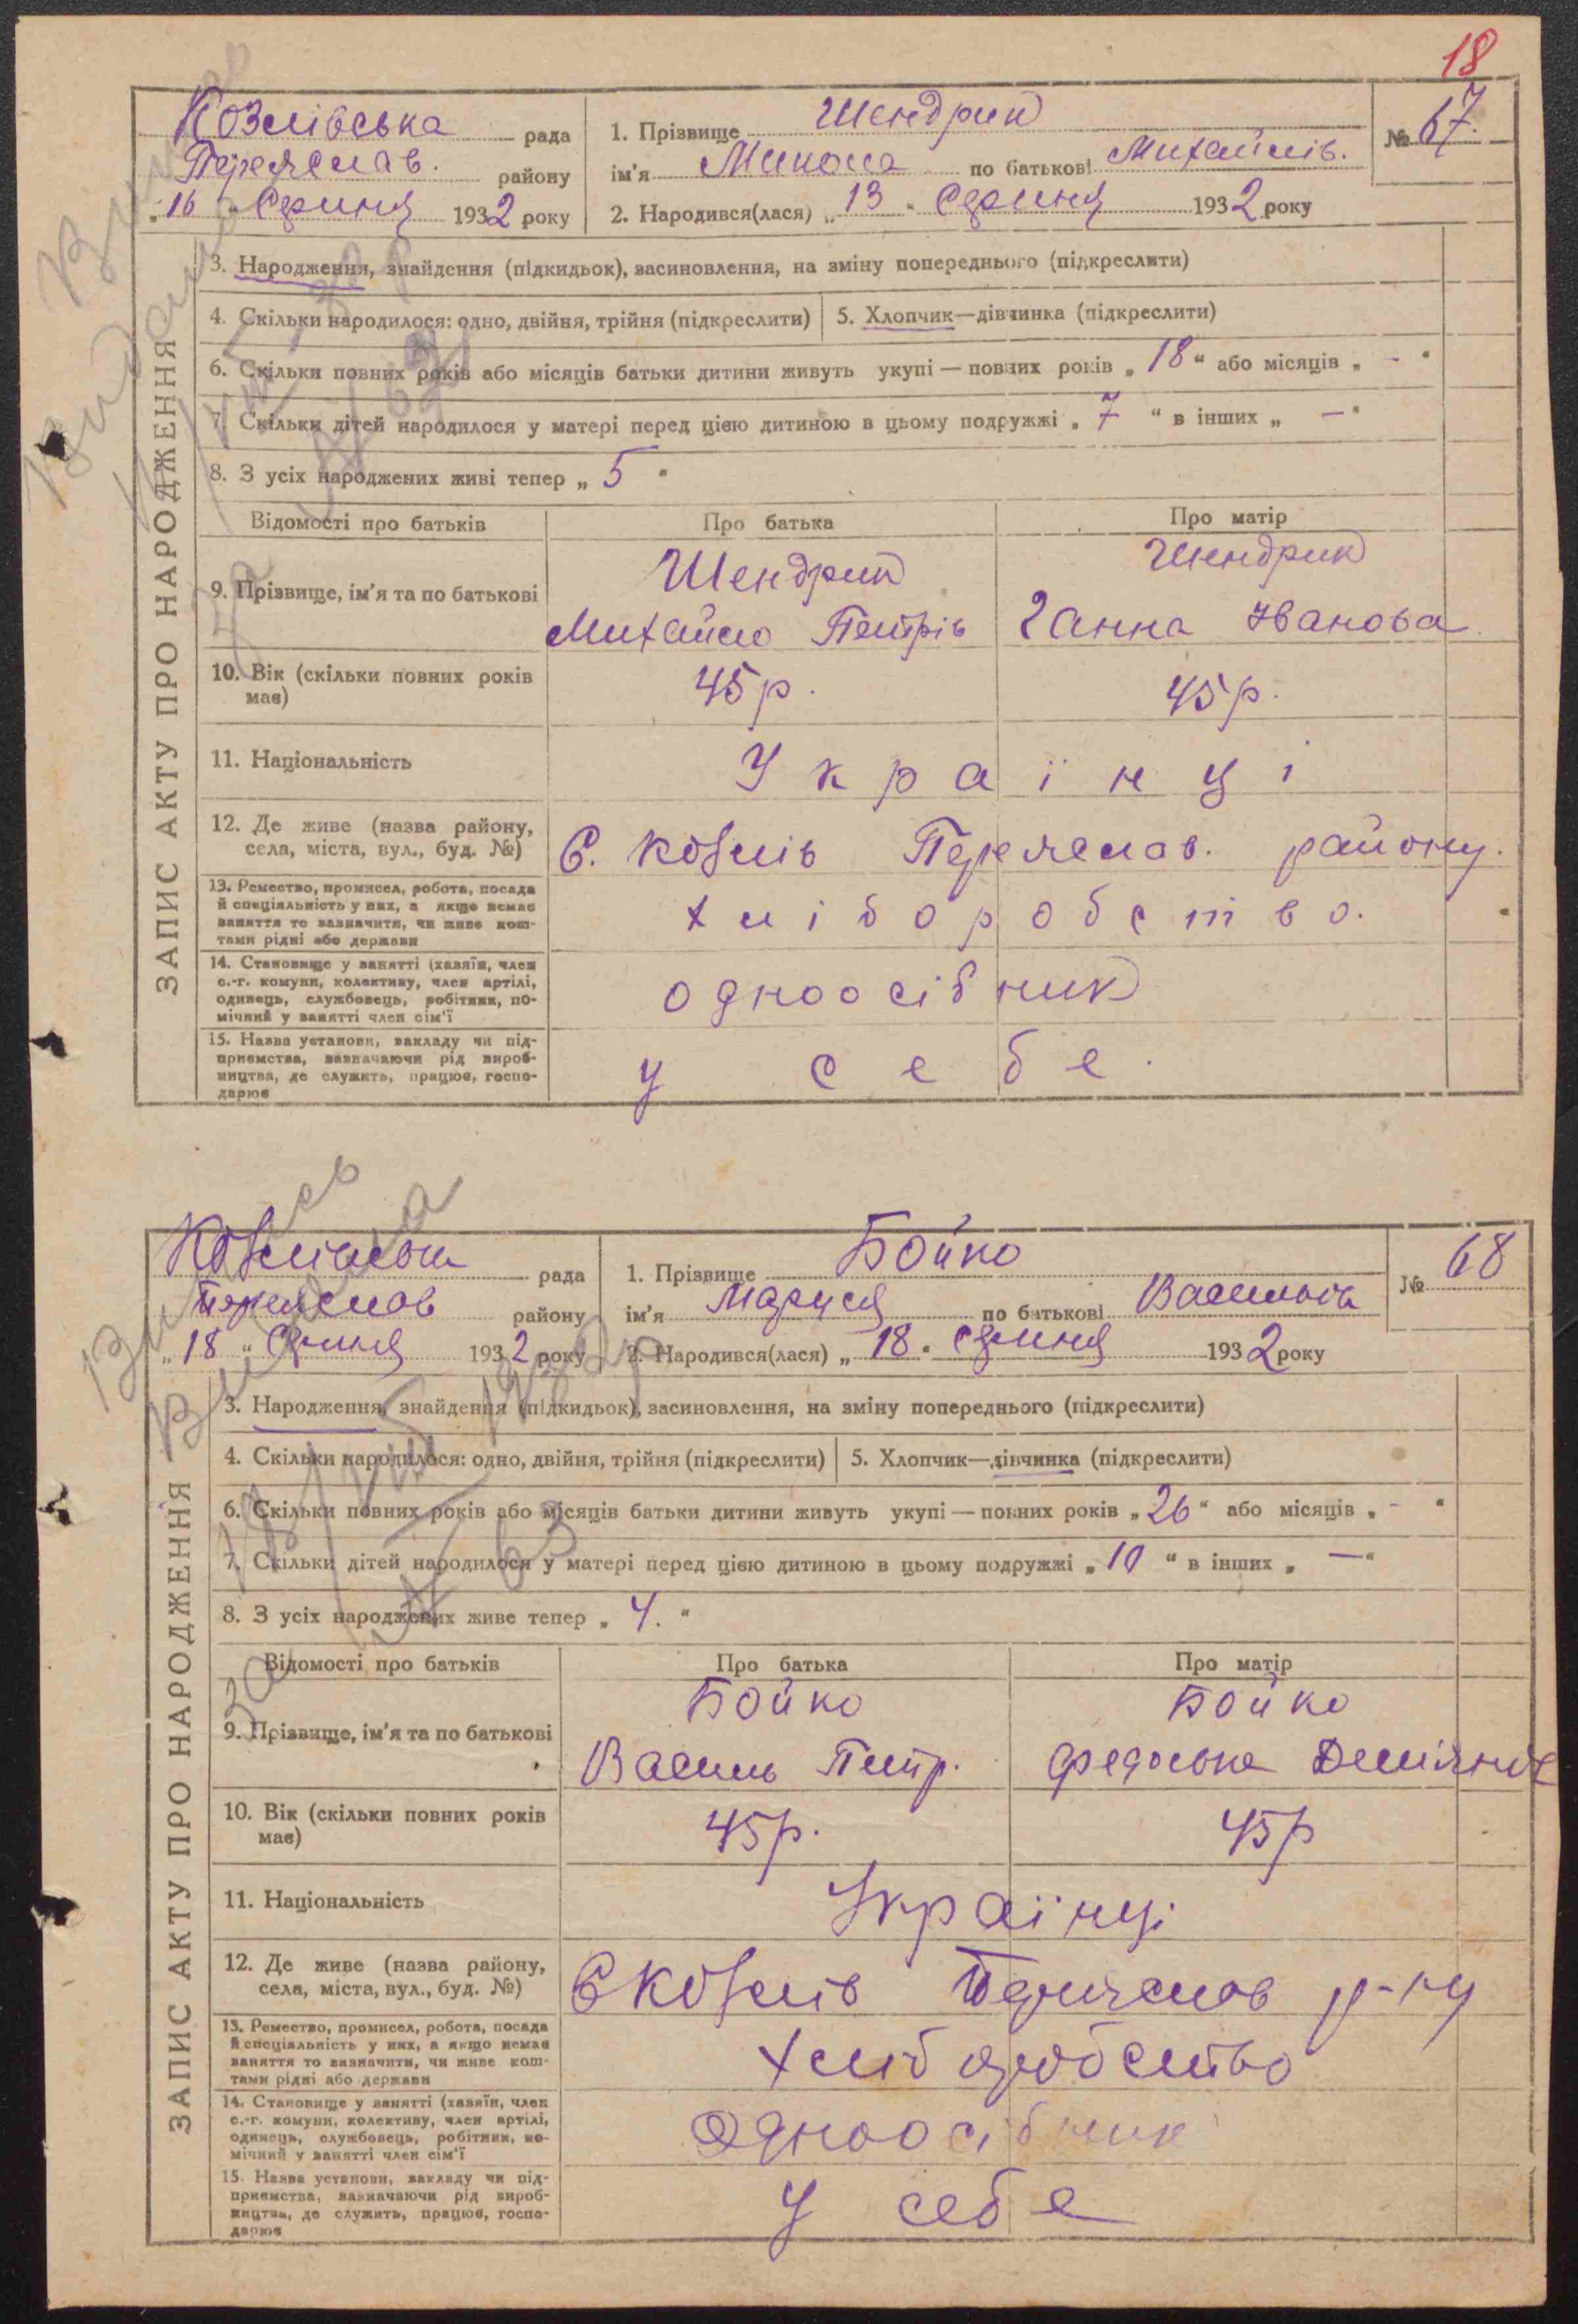 18
Козлівська рада
Переяслав. району
„16" Серпня 1932 року
1. Прізвище Шендрик
ім'я Микола по батькові Михайлів.
2. Народився(лася) „13" Серпня 1932 року
№ 67.
ЗАПИС АКТУ ПРО НАРОДЖЕННЯ
3. Народження, знайдення (підкидьок), засиновлення, на зміну попереднього (підкреслити)
4. Скільки народилося: одно, двійня, трійня (підкреслити) 5. Хлопчик—дівчинка (підкреслити)
6. Скільки повних років або місяців батьки дитини живуть укупі — повних років „18" або місяців „-"
7. Скільки дітей народилося у матері перед цією дитиною в цьому подружжі „7" в інших „—"
8. З усіх народжених живі тепер „5"
Відомості про батьків Про батька Про матір
9. Прізвище, ім'я та по батькові
Шендрик
Михайло Петрів
Шендрик
Ганна Іванова
10. Вік (скільки повних років має)
45 р. 45 р.
11. Національність
Українці
12. Де живе (назва району,
села, міста, вул., буд. №)
С. Козлів Переяслав. району.
13. Ремество, промисел, робота, посада
й спеціяльність у них, а якщо немає
заняття то зазначити, чи живе кош-
тами рідні або держави
хліборобство.
14. Становище у занятті (хазяїн, член
с.-г. комуни, колективу, член артілі,
одинець, службовець, робітник, по-
мічний у занятті член сім'ї
одноосібник
15. Назва установи, закладу чи під-
приємства, зазначаючи рід вироб-
ництва, де служить, працює, госпо-
дарює
у себе.
Козлівська рада
Переяслав району
„18" Серпня 1932 року
1. Прізвище Бойко
ім'я Маруся по батькові Васильова
2. Народився(лася) „18" серпня 1932 року
№ 68
ЗАПИС АКТУ ПРО НАРОДЖЕННЯ
3. Народження, знайдення (підкидьок), засиновлення, на зміну попереднього (підкреслити)
4. Скільки народилося: одно, двійня, трійня (підкреслити) 5. Хлопчик—дівчинка (підкреслити)
6. Скільки повних років або місяців батьки дитини живуть укупі — повних років „26" або місяців „-"
7. Скільки дітей народилося у матері перед цією дитиною в цьому подружжі „10" в інших „—"
8. З усіх народжених живе тепер „4."
Відомості про батьків Про батька Про матір
9. Прізвище, ім'я та по батькові
Бойко
Василь Петр.
Бойко
Федоська
10. Вік (скільки повних років має)
45 р. 45 р
11. Національність
Українці
12. Де живе (назва району,
села, міста, вул., буд. №)
С Козлів Переяслав р-ну
13. Ремество, промисел, робота, посада
й спеціяльність у них, а якщо немає
заняття то зазначити, чи живе кош-
тами рідні або держави
Хліборобство
14. Становище у занятті (хазяїн, член
с.-г. комуни, колективу, член артілі,
одинець, службовець, робітник, по-
мічний у занятті член сім'ї
Одноосібник
15. Назва установи, закладу чи під-
приємства, зазначаючи рід вироб-
ництва, де служить, працює, госпо-
дарює
у себе